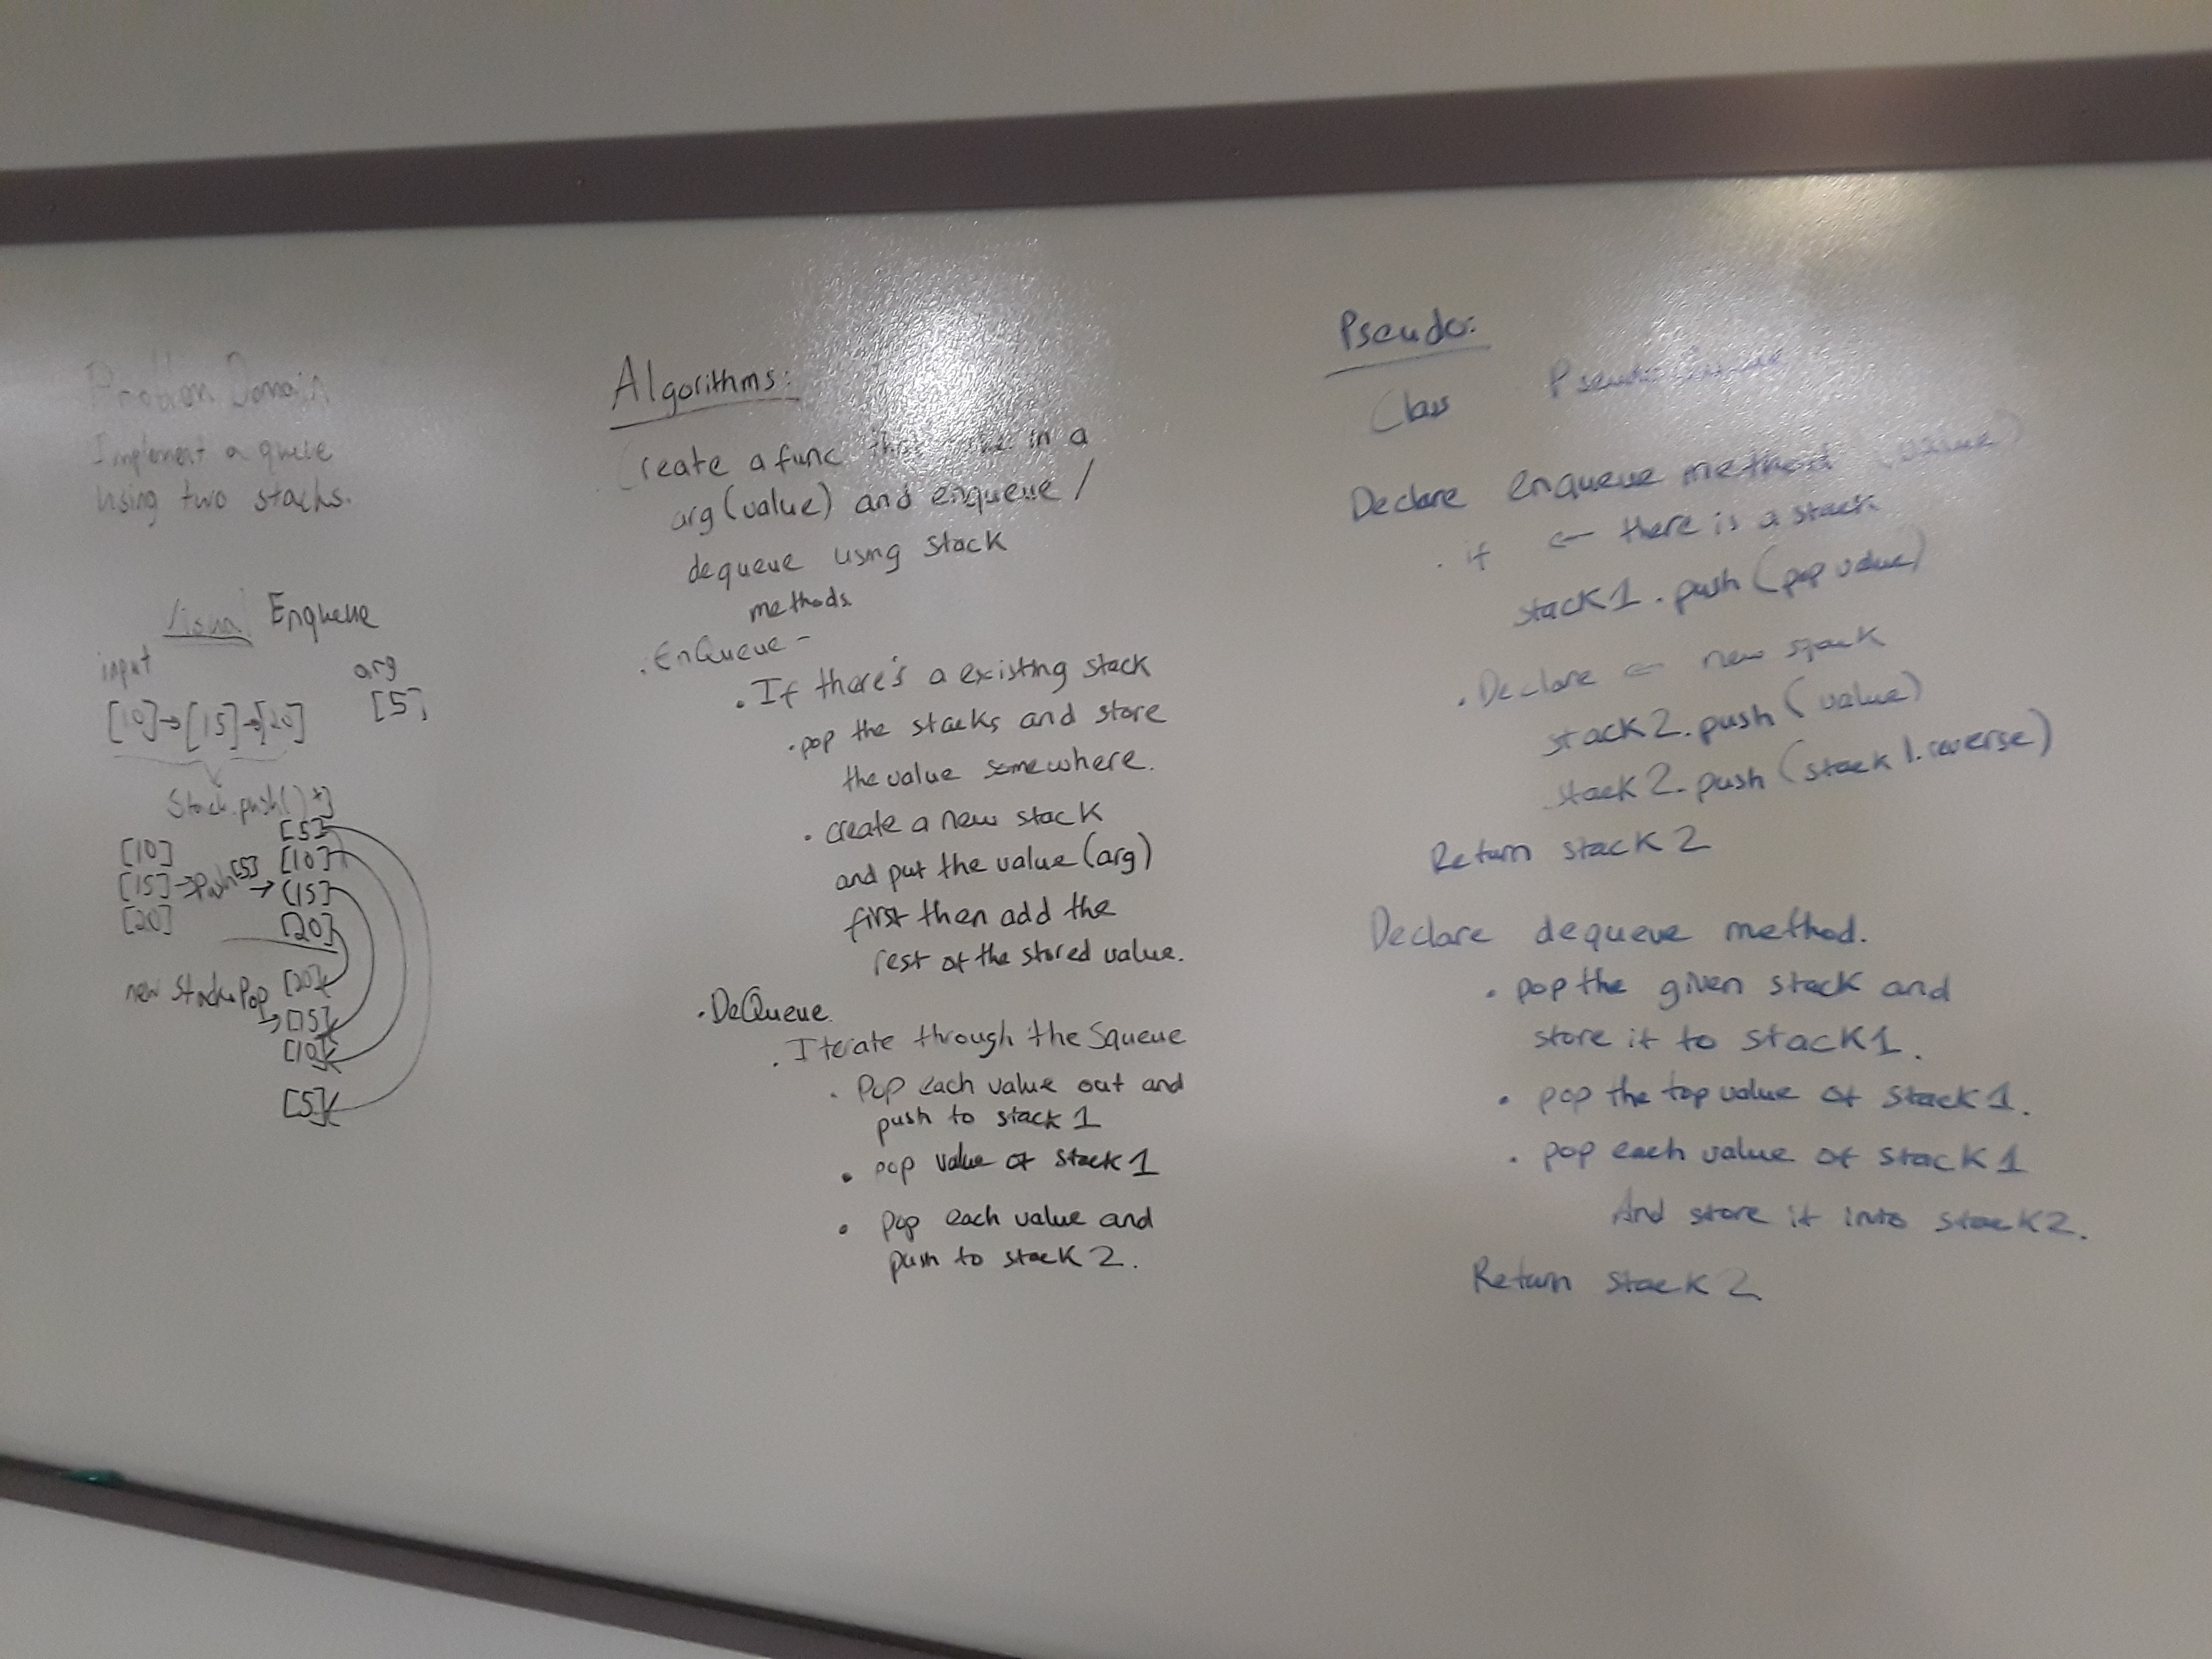 Problem Domain
Implement a queue
using two stacks.
Visual Enqueue
input arg
[10]→[15]→[20] [5]
Stack.push()
[5]
[10] [10]
[15]→Push[5]→[15]
[20] [20]
new Stack.Pop [20]
→[15]
[10]
[5]
Algorithms:
Create a func in a
arg(value) and enqueue/
dequeue using stack
methods.
.EnQueue-
. If there's a existing stack
.pop the stacks and store
the value somewhere.
. create a new stack
and put the value (arg)
first then add the
rest of the stored value.
.DeQueue
. Iterate through the Squeue
. Pop each value out and
push to stack 1
. pop value of stack 1
. pop each value and
push to stack 2.
Pseudo:
Class Pseudo
Declare enqueue method (value)
. if ← there is a stack
stack1.push(pop value)
.Declare ← new stack
stack2.push(value)
stack2.push(stack1.reverse)
Return stack2
Declare dequeue method.
. pop the given stack and
store it to stack1.
. pop the top value of stack1.
. pop each value of stack1
And store it into stack2.
Return stack2